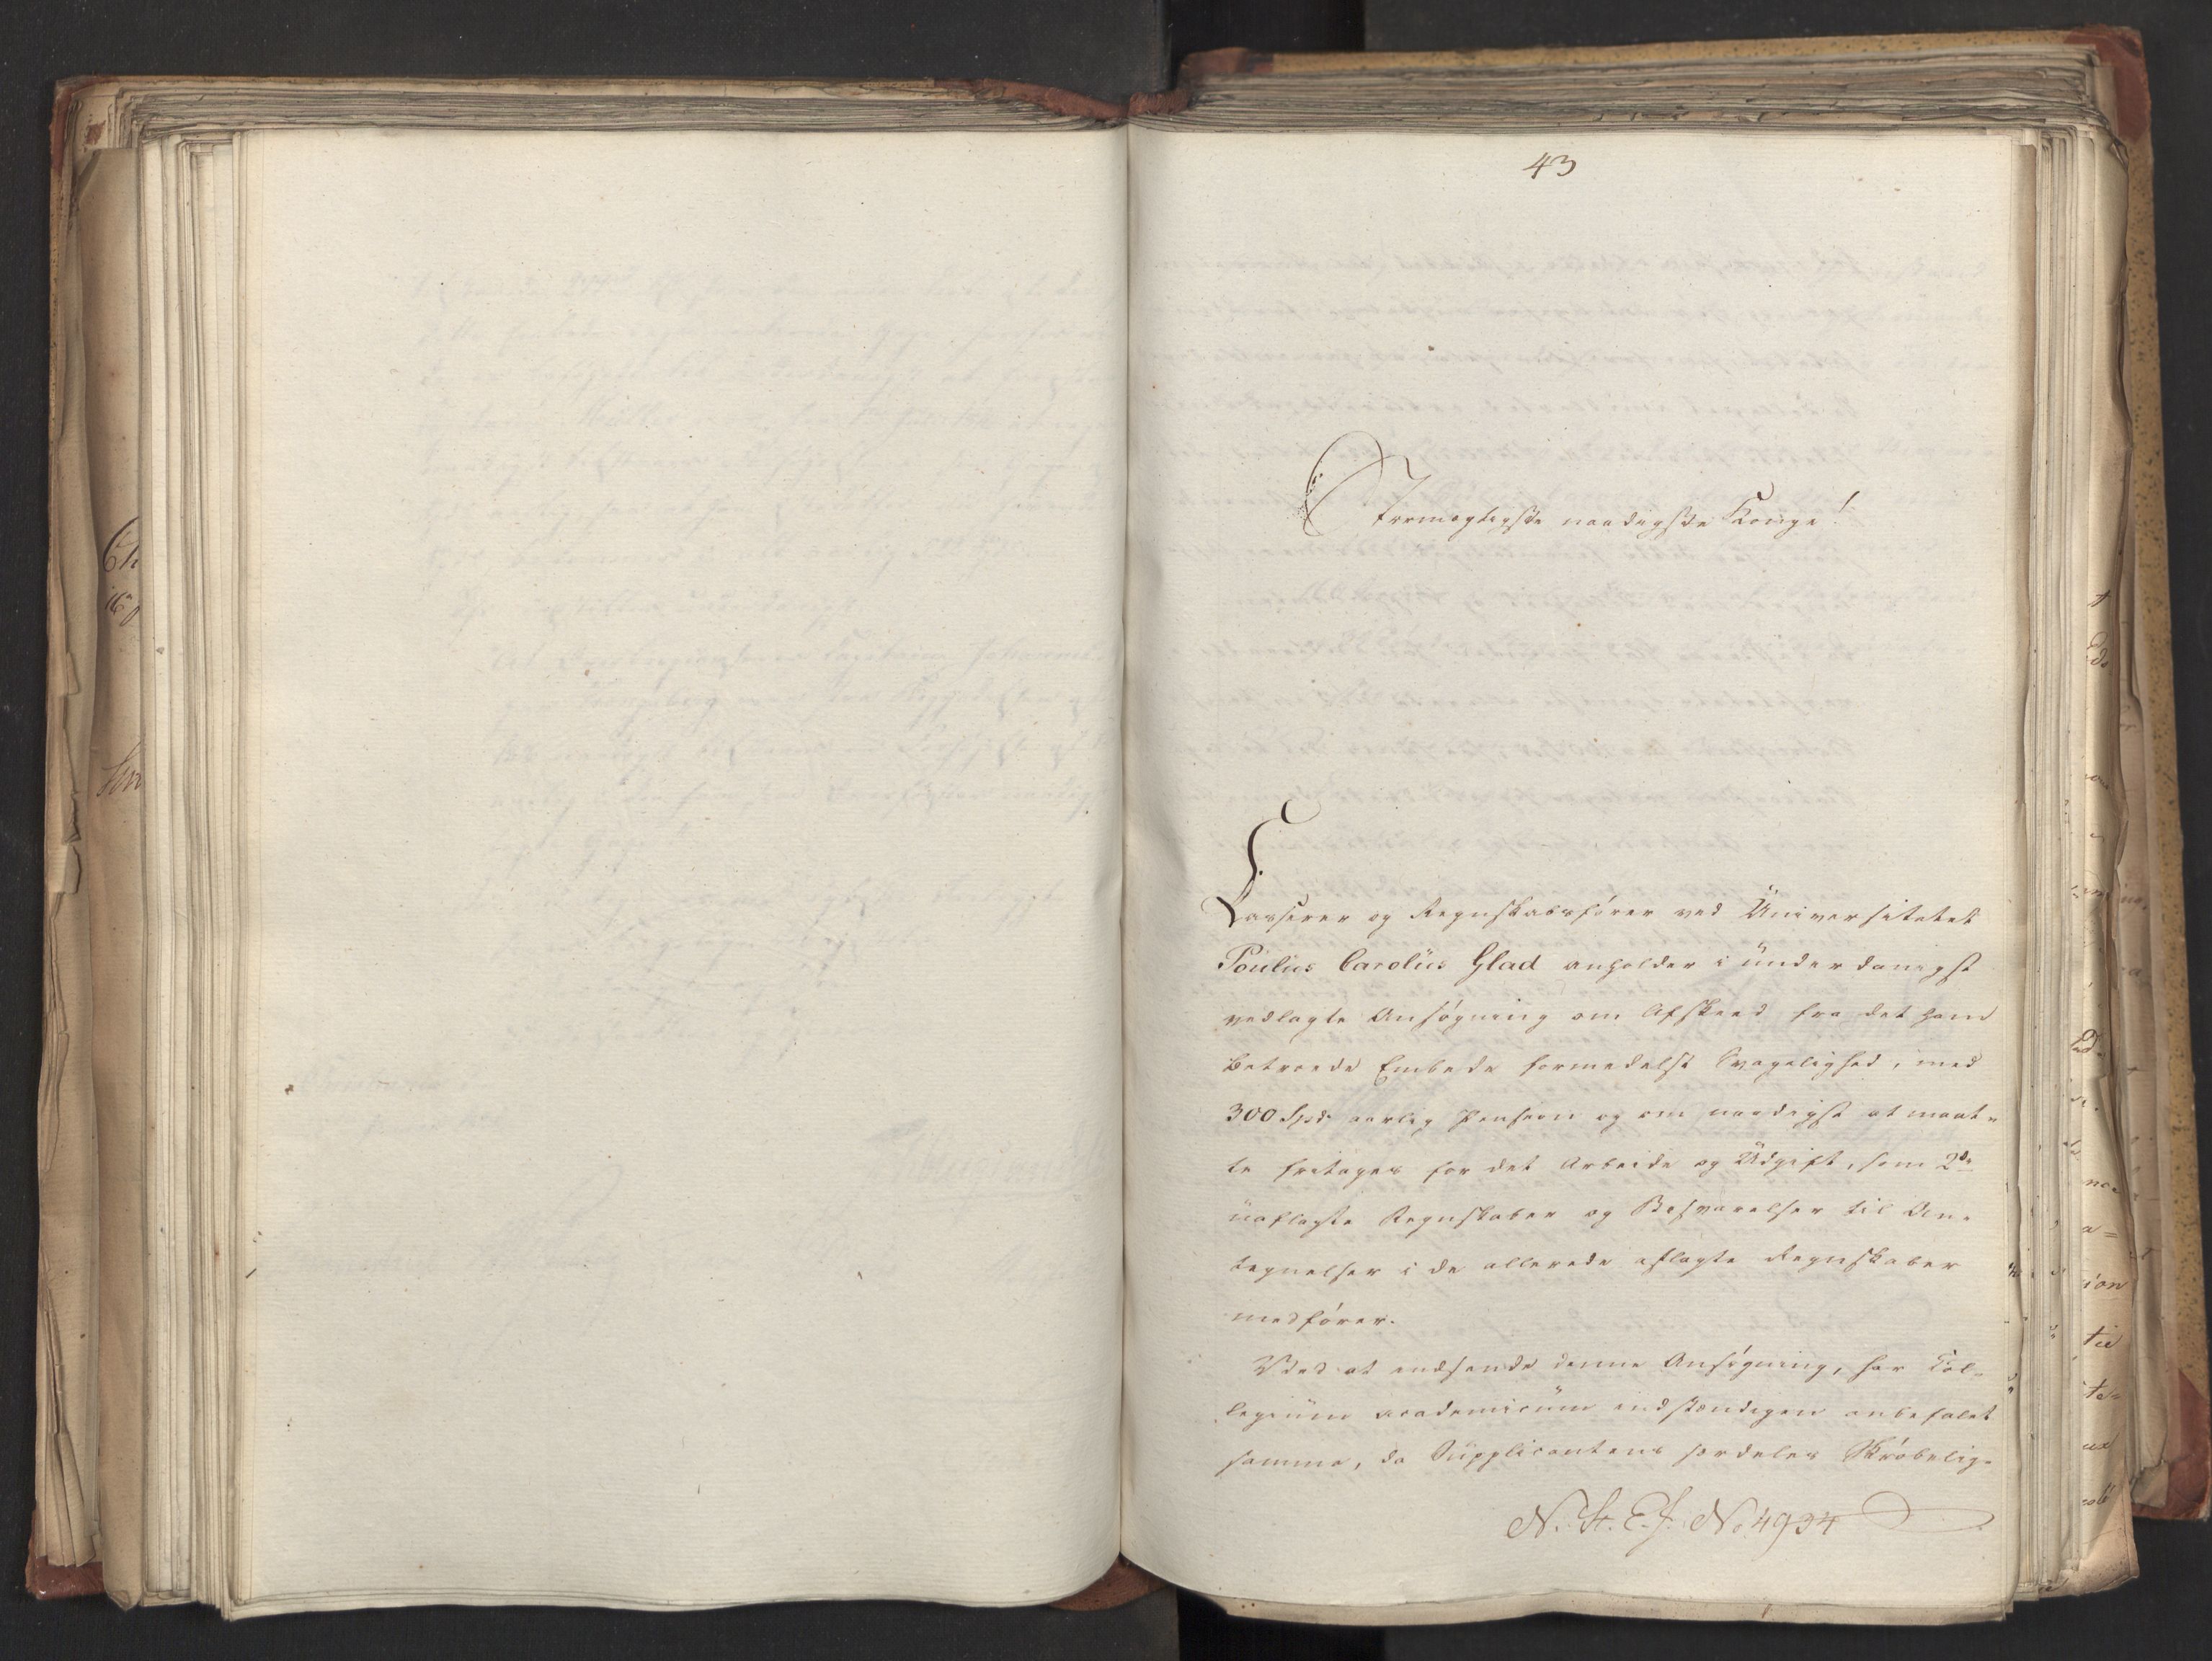 43
Stormægtigste naadigste Konge!
Casserer og Regnskabsfører ved Universitetet
Poulus Carolus Glad anholder i underdanigst
vedlagte Ansøgning om Afskeed fra det ham
betroede Embede formedelst Svagelighed, med
300 Spd. aarlig Pension og om naadigst at maat-
te fritages for det Arbeide og Udgift, som 2de
uaflagte Regnskaber og Besvarelser til An-
tegnelser i de allerede aflagte Regnskaber
medfører.
Ved at indsende denne Ansøgning, har Col-
legium academicum indstændigen anbefalet
samme, da Supplicantens særdeles Skrøbelig-
N. St. E. J. No 4934